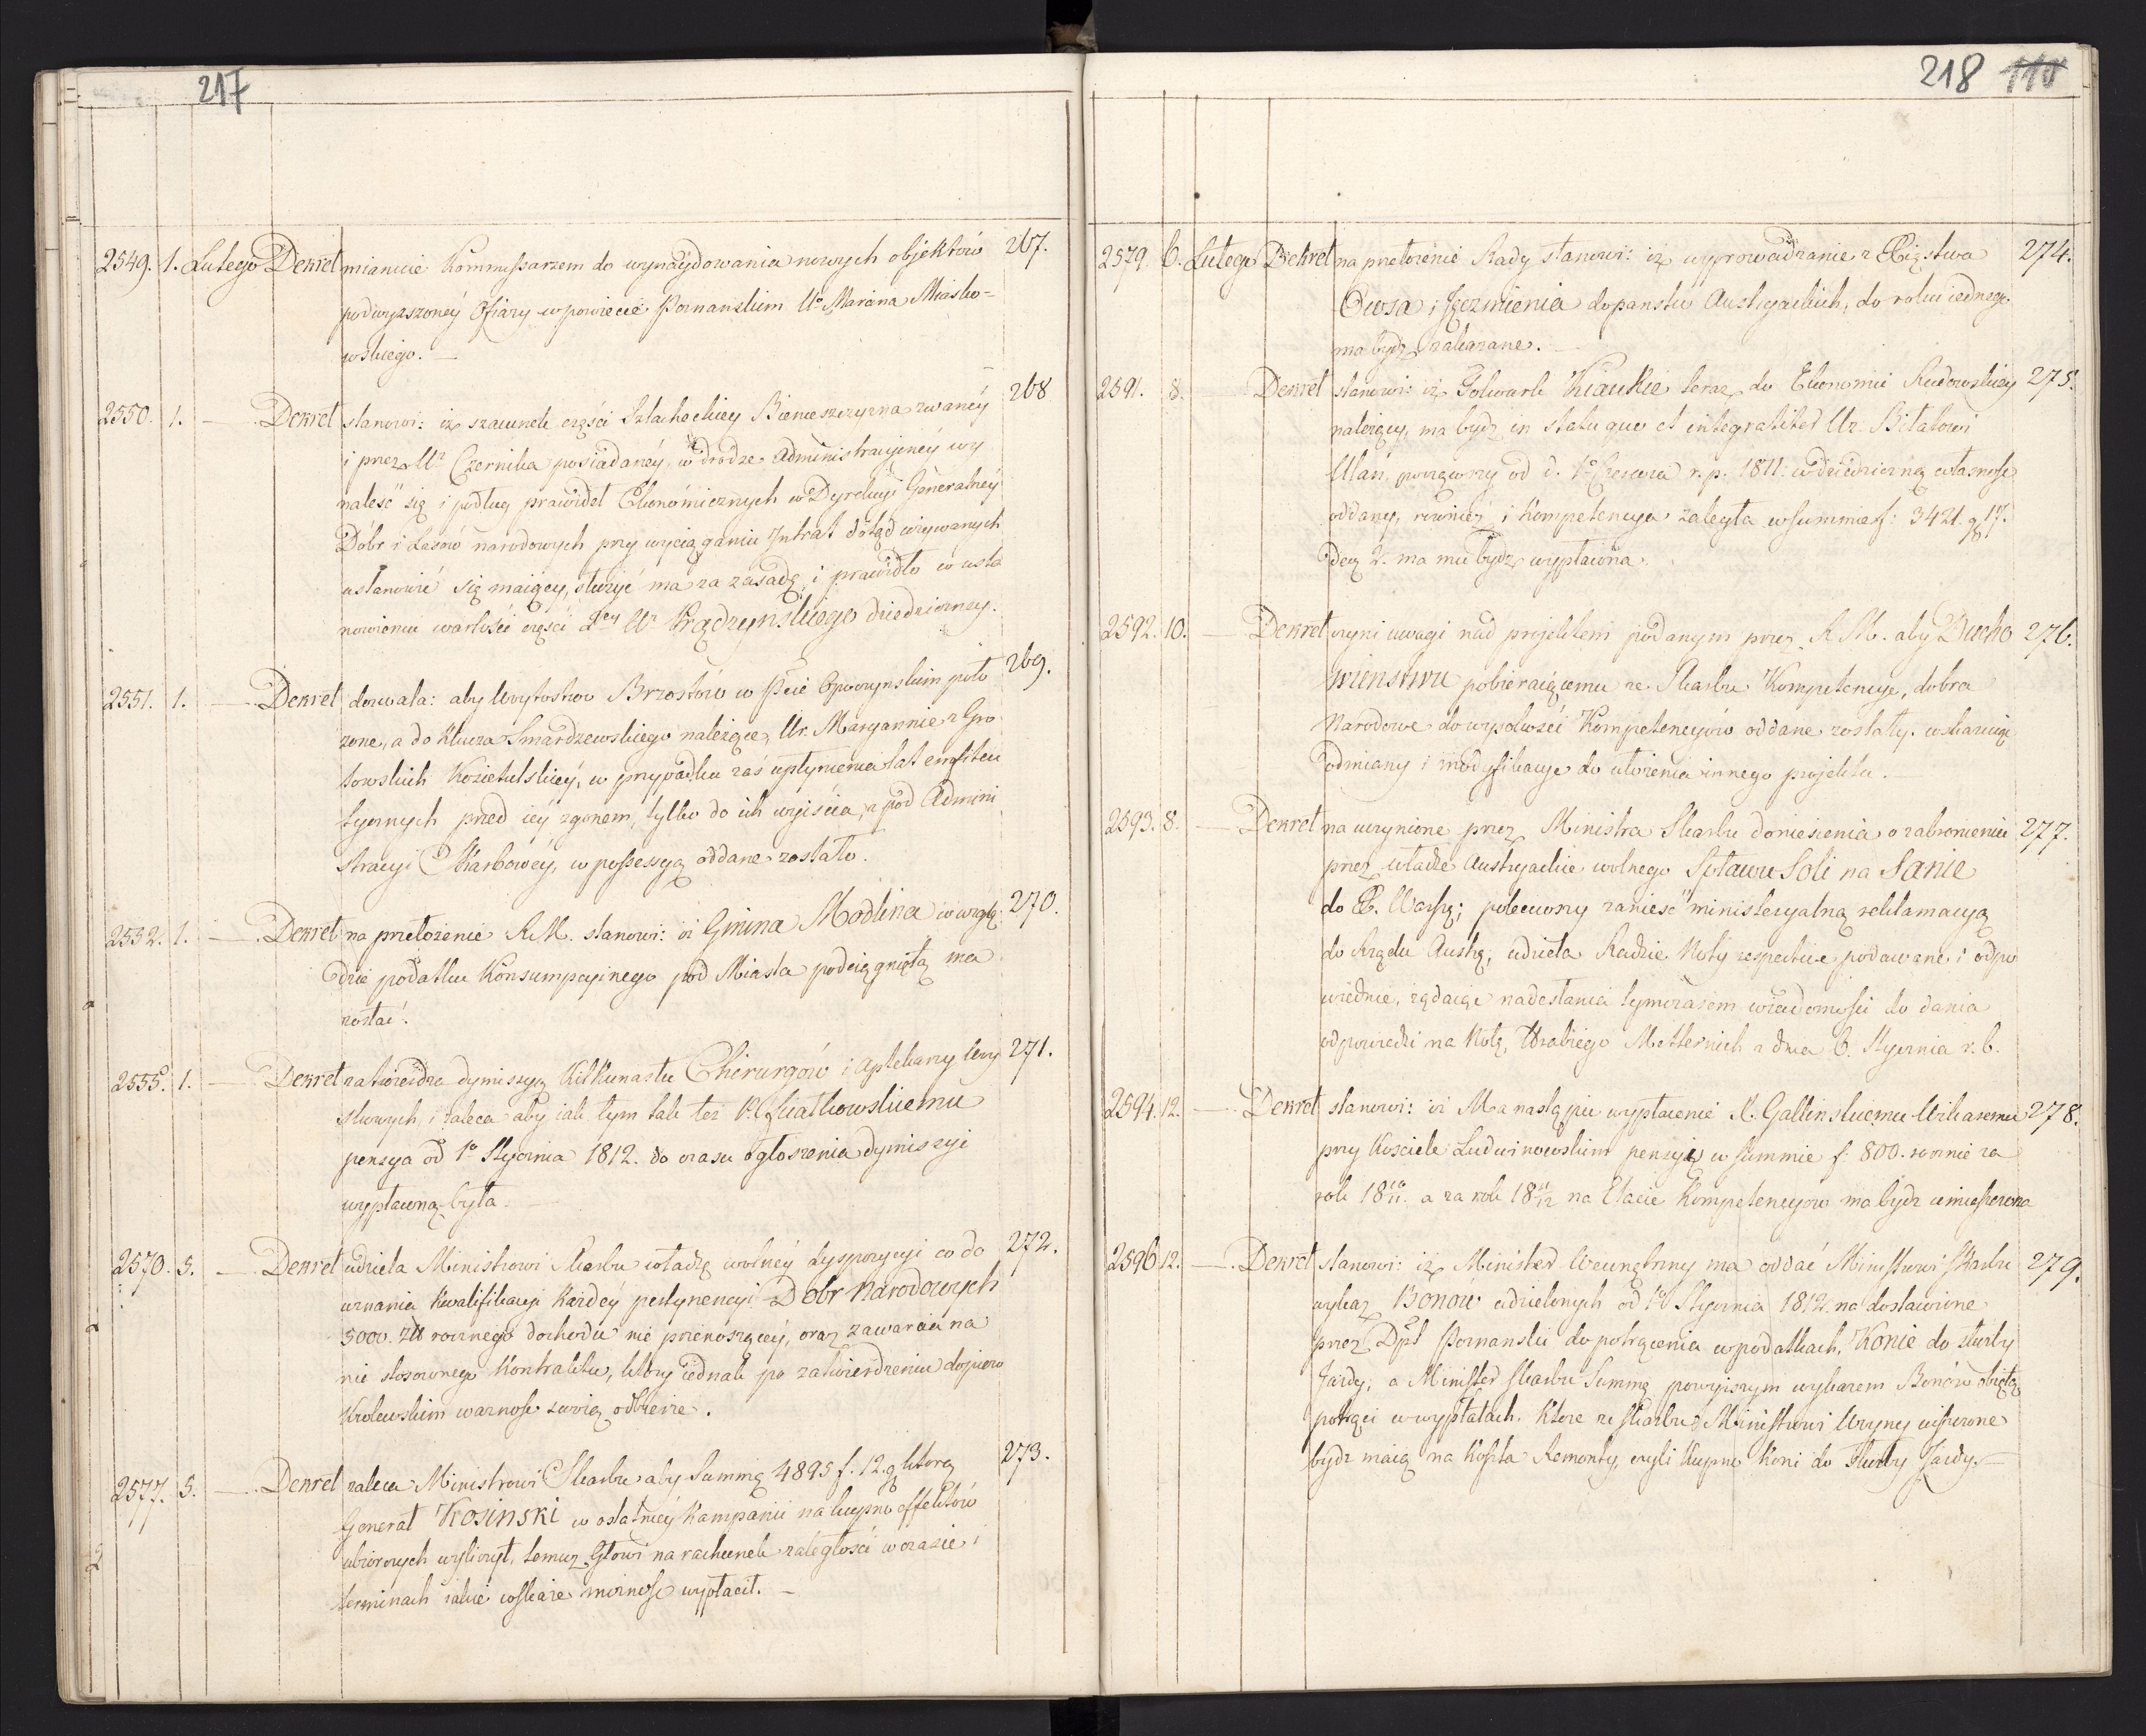 217
2549. 1. Lutego Dekret mianuie Kommissarzem do wynaydowania nowych objektów 267.
podwyższoney Ofiary w powiecie Poznanskim Uo Mariana Miasko=
wskiego. —
2550. 1. — Dekret stanowi: iż szacunek części Szlacheckiey Bienieszczyzna zwaney 268
i przez Ur Czernika posiadaney, w drodze Administracyiney wy
naleść się i podług prawideł Ekonomicznych w Dyrekcyi Generalney
Dóbr i Lasów narodowych przy wyciąganiu Intrat dotąd używanych
ustanowić się maiący, służyć ma za zasadę i prawidło w usta
nowieniu wartości części 2giey Ur Prądzynskiego dziedziczney.
2551. 1. — Dekret dozwala: aby Wóytostwo Brzostów w Pcie Opoczynskim poło 269.
zone, a do Klucza Smardzewskiego należące, Ur. Maryannie z Gro
towskich Kozietulskiey, w przypadku zaś upłynienia lat emfiteu
tycznych przed iey zgonem, tylko do ich wyiścia, z pod Admini
stracyi Skarbowey, w possessyą oddane zostało.
2552. 1. — Dekret na przełożenie R.M. stanowi: iż Gmina Modlina w wzglę 270.
dzie podatku Konsumpcyinego pod Miasta podciągniętą ma
zostać.
2555. 1. — Dekret zatwierdza dymissyą Kilkunastu Chirurgów i aptekarzy 271.
i zaleca aby iak tym tak też Kwiatkowskiemu
pensya od 1o Stycznia 1812. do czasu ogłoszenia dymissyi
wypłaconą była. —
2570. 5. — Dekret udziela Ministrowi Skarbu władzę wolney dyspozycyi co do 272.
uznania kwalifikacyi Każdey pertynencyi Dobr Narodowych
5000. Złł rocznego dochodu nie przenoszącey, oraz zawarcia na
nie stosownego Kontraktu, który iednak po zatwierdzeniu dopiero
Krolewskim ważnosc swoią odbierze.
2577. 5. — Dekret zaleca Ministrowi Skarbu aby Summę 4895 f. 12. g którą 273.
Generał Kosinski w ostatniey Kampanii na kupno effektów
ubiorczych wyliczył, temuż Głowi na rachunek zaległości w czasie i
terminach iakie wskaże możność wypłacił. —
218 110
2579. 6. Lutego Dekret na przełożenie Rady stanowi: iż wyprowadzanie z Xięstwa 274.
Owsa i Jęczmienia do państw Austryackich, do roku iednego
ma bydz zakazane. —
2591. 8. Dekret stanowi: iż Folwark Kiaukie teraz do Ekonomii Rudowskiey 275.
należący, ma bydź in statu quo et integraliter Ur. Bitalowi
Ułań. począwszy od d. 1o Czerwca r. p. 1811. w dziedziczną własnosc
oddany, również i Kompetencya zaległa w summie f: 3421. g 17.
den 2. ma mu bydz wypłacona.
2592. 10. — Dekret czyni uwagi nad projektem podanym przez R.M. aby Ducho 276.
wienstwu pobieraiącemu ze Skarbu Kompetencye, dobra
Narodowe do wysokości Kompetencyów oddane zostały. wskazuiąc
odmiany i modyfikacye do ułożenia innego projektu. —
2593. 8. — Dekret na uczynione przez Ministra Skarbu doniesienia o zabronieniu 277.
przez władze Austryackie wolnego Spławu Soli na Sanie
do X. Warsz; poleciwszy zanieść ministeryalną reklamacyą
do Rządu Austr; udziela Radzie Noty respective podawane i odpo
wiednie, żądaiąc nadesłania tymczasem wiadomości do dania
odpowiedzi na Notę, Hrabiego Metternich z dnia 6. Stycznia r. b.
2594. 12. — Dekret stanowi: iż Ma nastąpić wypłacenie X. Gallinskiemu Wikaremu 278.
przy Kosciele Ludwinowskim pensyi w summie f: 800. rocznie za
rok 18 10/11. a za rok 18 11/12 na Etacie Kompetencyow ma bydz umieszczona
2596 12. — Dekret stanowi: iż Minister Wewnętrzny ma oddać Ministrowi Skarbu 279.
wykaz Bonow udzielonych od 1o Stycznia 1812. na dostawione
przez Dpt Poznanski do potrącenia w podatkach, Konie do służby
Jazdy; a Minister Skarbu Summę powyższym wykazem Bonów obiętą
potrąci w wypłatach, Które ze Skarbu Ministrowi Woyny uiszczone
bydz maią na Koszta Remonty, czyli Kupno Koni do służby Jazdy. —